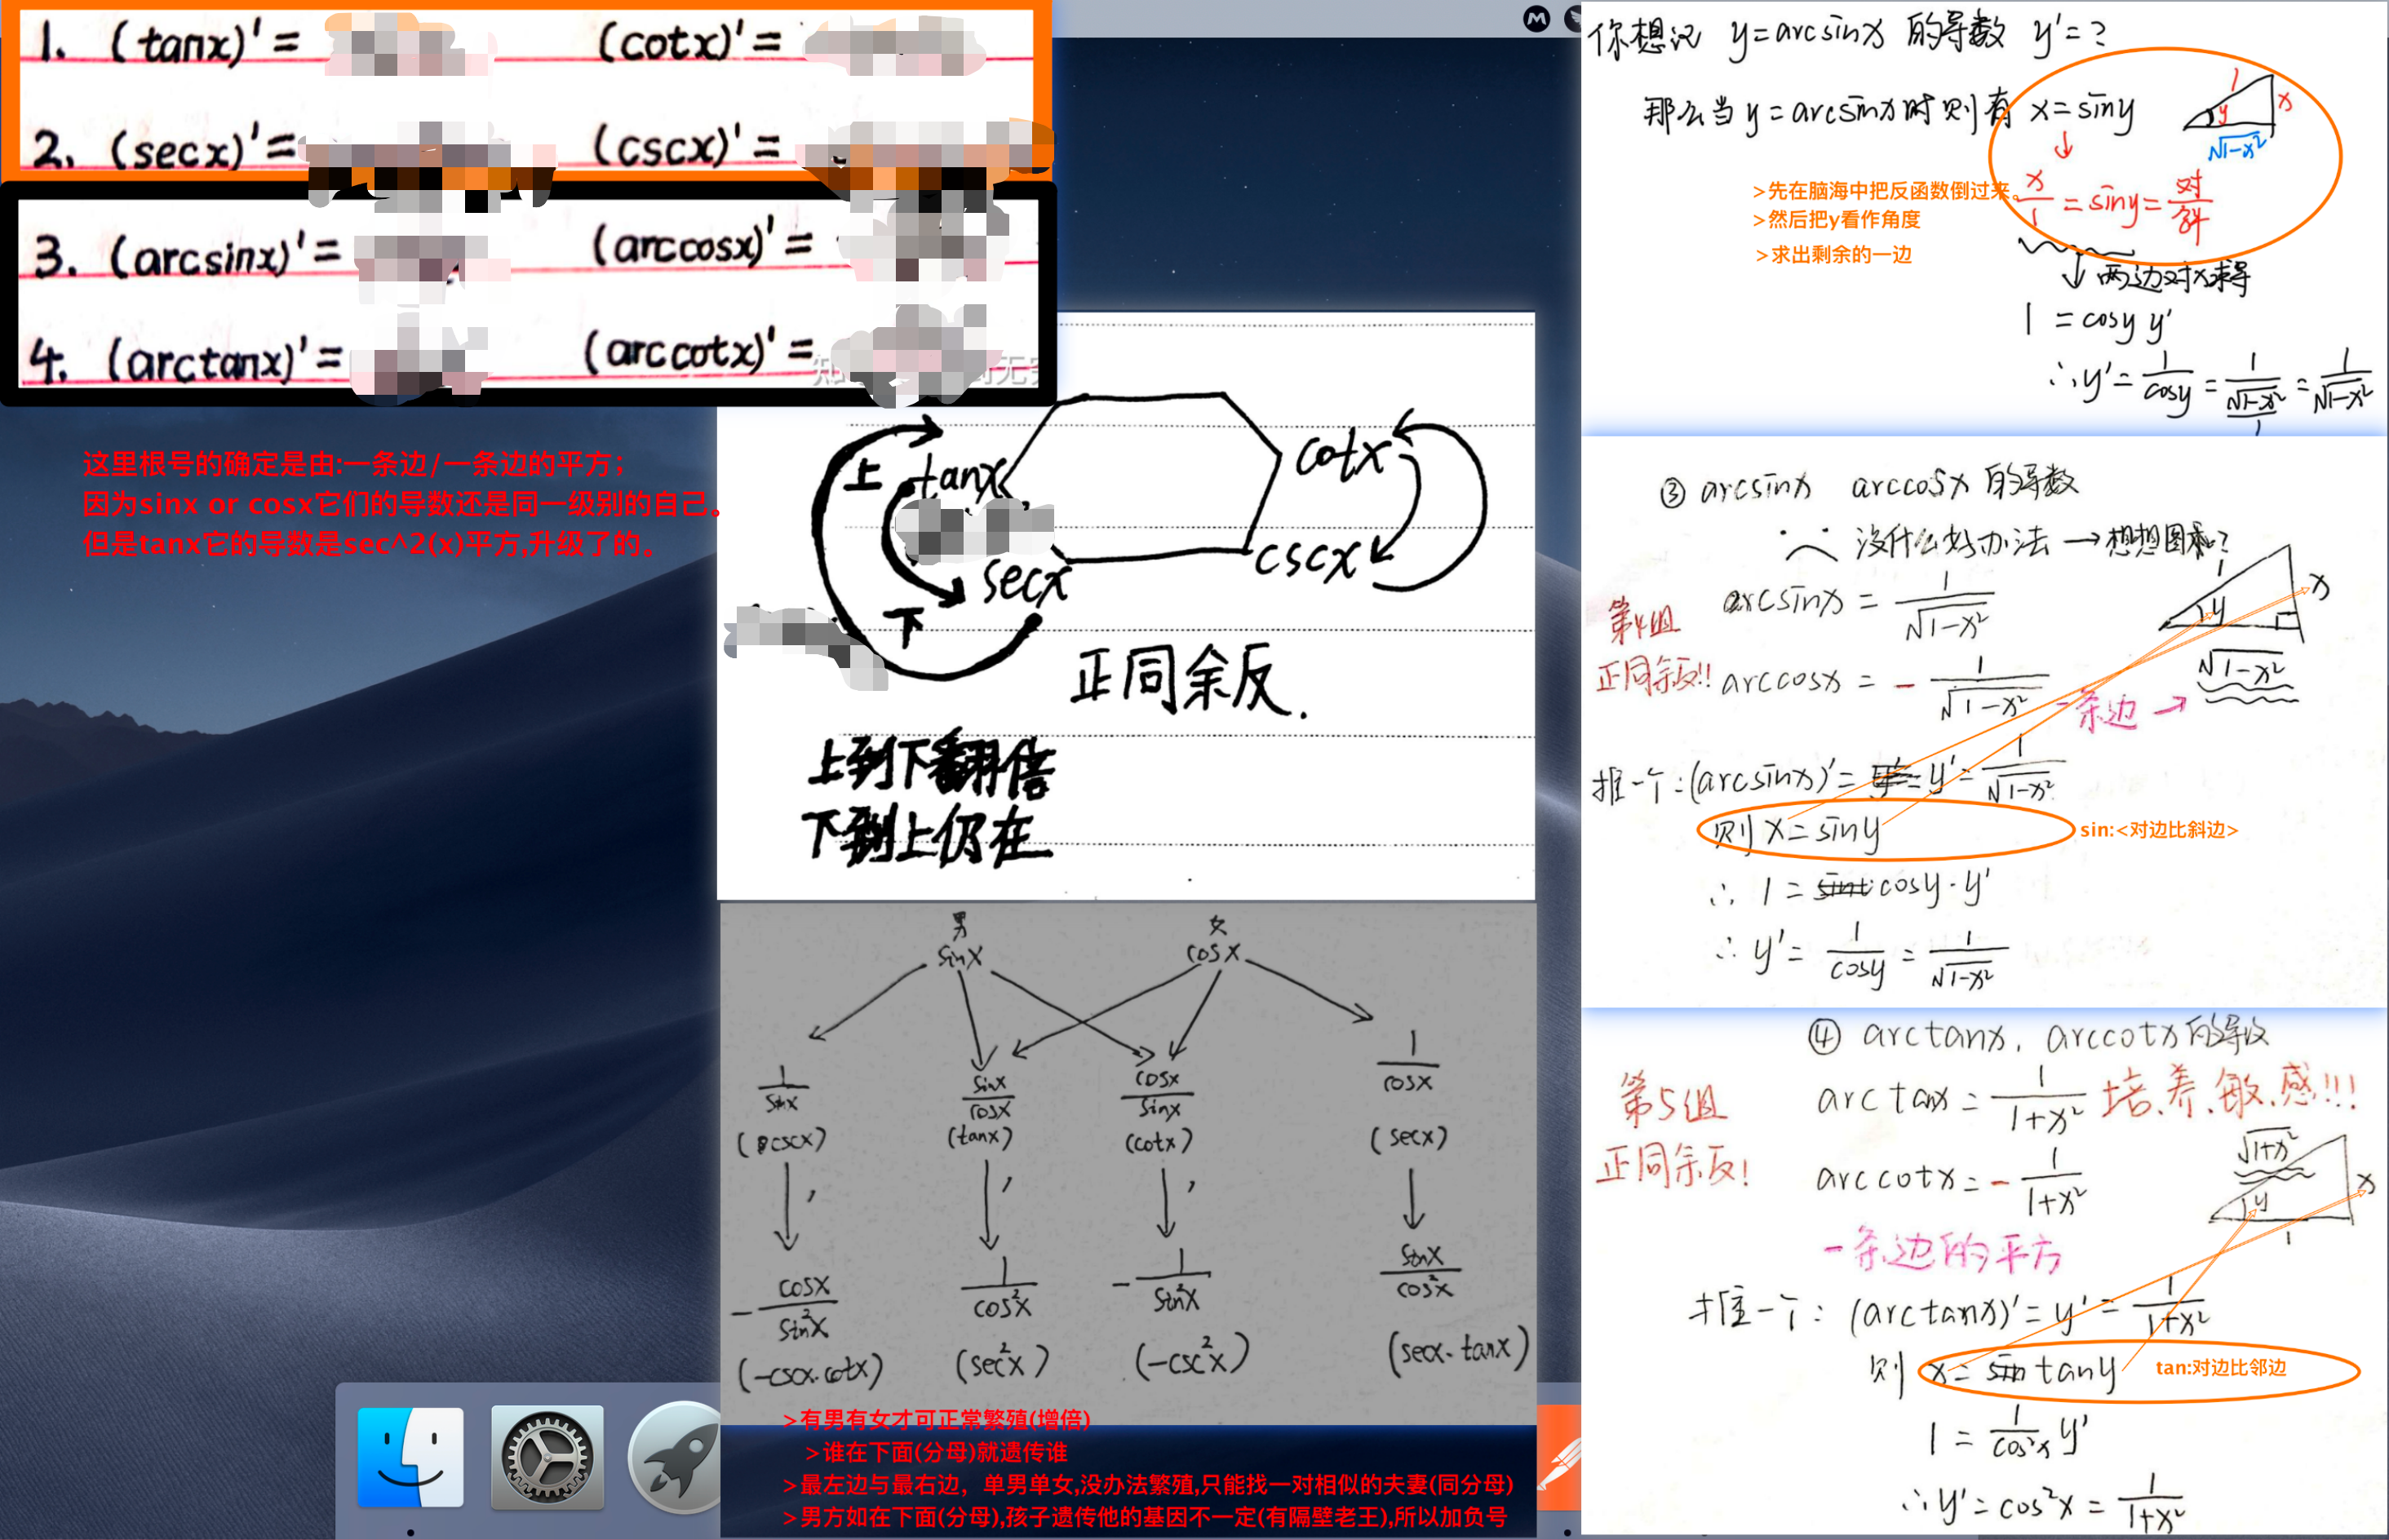 1. (tanx)' =
(cotx)' =
2. (secx)' =
(cscx)' =
3. (arcsinx)' =
(arccosx)' =
4. (arctanx)' =
(arccotx)' =
这里根号的确定是由:一条边/一条边的平方；
因为sinx or cosx它们的导数还是同一级别的自己。
但是tanx它的导数是sec^2(x)平方,升级了的。
上
tanx
cotx
secx
cscx
下
正同余反.
上到下翻倍
下到上仍在
男
女
sinx
cosx
1/sinx
sinx/cosx
cosx/sinx
1/cosx
(cscx)
(tanx)
(cotx)
(secx)
-cosx/sin²x
1/cos²x
-1/sin²x
sinx/cos²x
(-cscx·cotx)
(sec²x)
(-csc²x)
(secx·tanx)
>有男有女才可正常繁殖(增倍)
>谁在下面(分母)就遗传谁
>最左边与最右边，单男单女,没办法繁殖,只能找一对相似的夫妻(同分母)
>男方如在下面(分母),孩子遗传他的基因不一定(有隔壁老王),所以加负号
你想记 y=arcsinx 的导数 y'=?
那么当 y=arcsinx时 则有 x=siny
1
y
x
√1-x²
>先在脑海中把反函数倒过来。
x/1 = siny = 对/斜
>然后把y看作角度
>求出剩余的一边
两边对x求导
1 = cosy y'
∴ y' = 1/cosy = 1/(√1-x²/1) = 1/√1-x²
③ arcsinx arccosx 的导数
没什么好办法 → 想想图形?
第4组
arcsinx = 1/√1-x²
正同余反!!
arccosx = - 1/√1-x²
1
y
x
√1-x²
一条边 →
推一个: (arcsinx)' = y' = 1/√1-x²
则 x = siny
sin:<对边比斜边>
∴ 1 = cosy·y'
∴ y' = 1/cosy = 1/√1-x²
④ arctanx, arccotx 的导数
第5组
arctanx = 1/1+x² 培养敏感!!!
正同余反!
arccotx = - 1/1+x²
√1+x²
y
x
1
一条边的平方
推一个: (arctanx)' = y' = 1/1+x²
则 x = tany
tan:对边比邻边
1 = 1/cos²x y'
∴ y' = cos²x = 1/1+x²